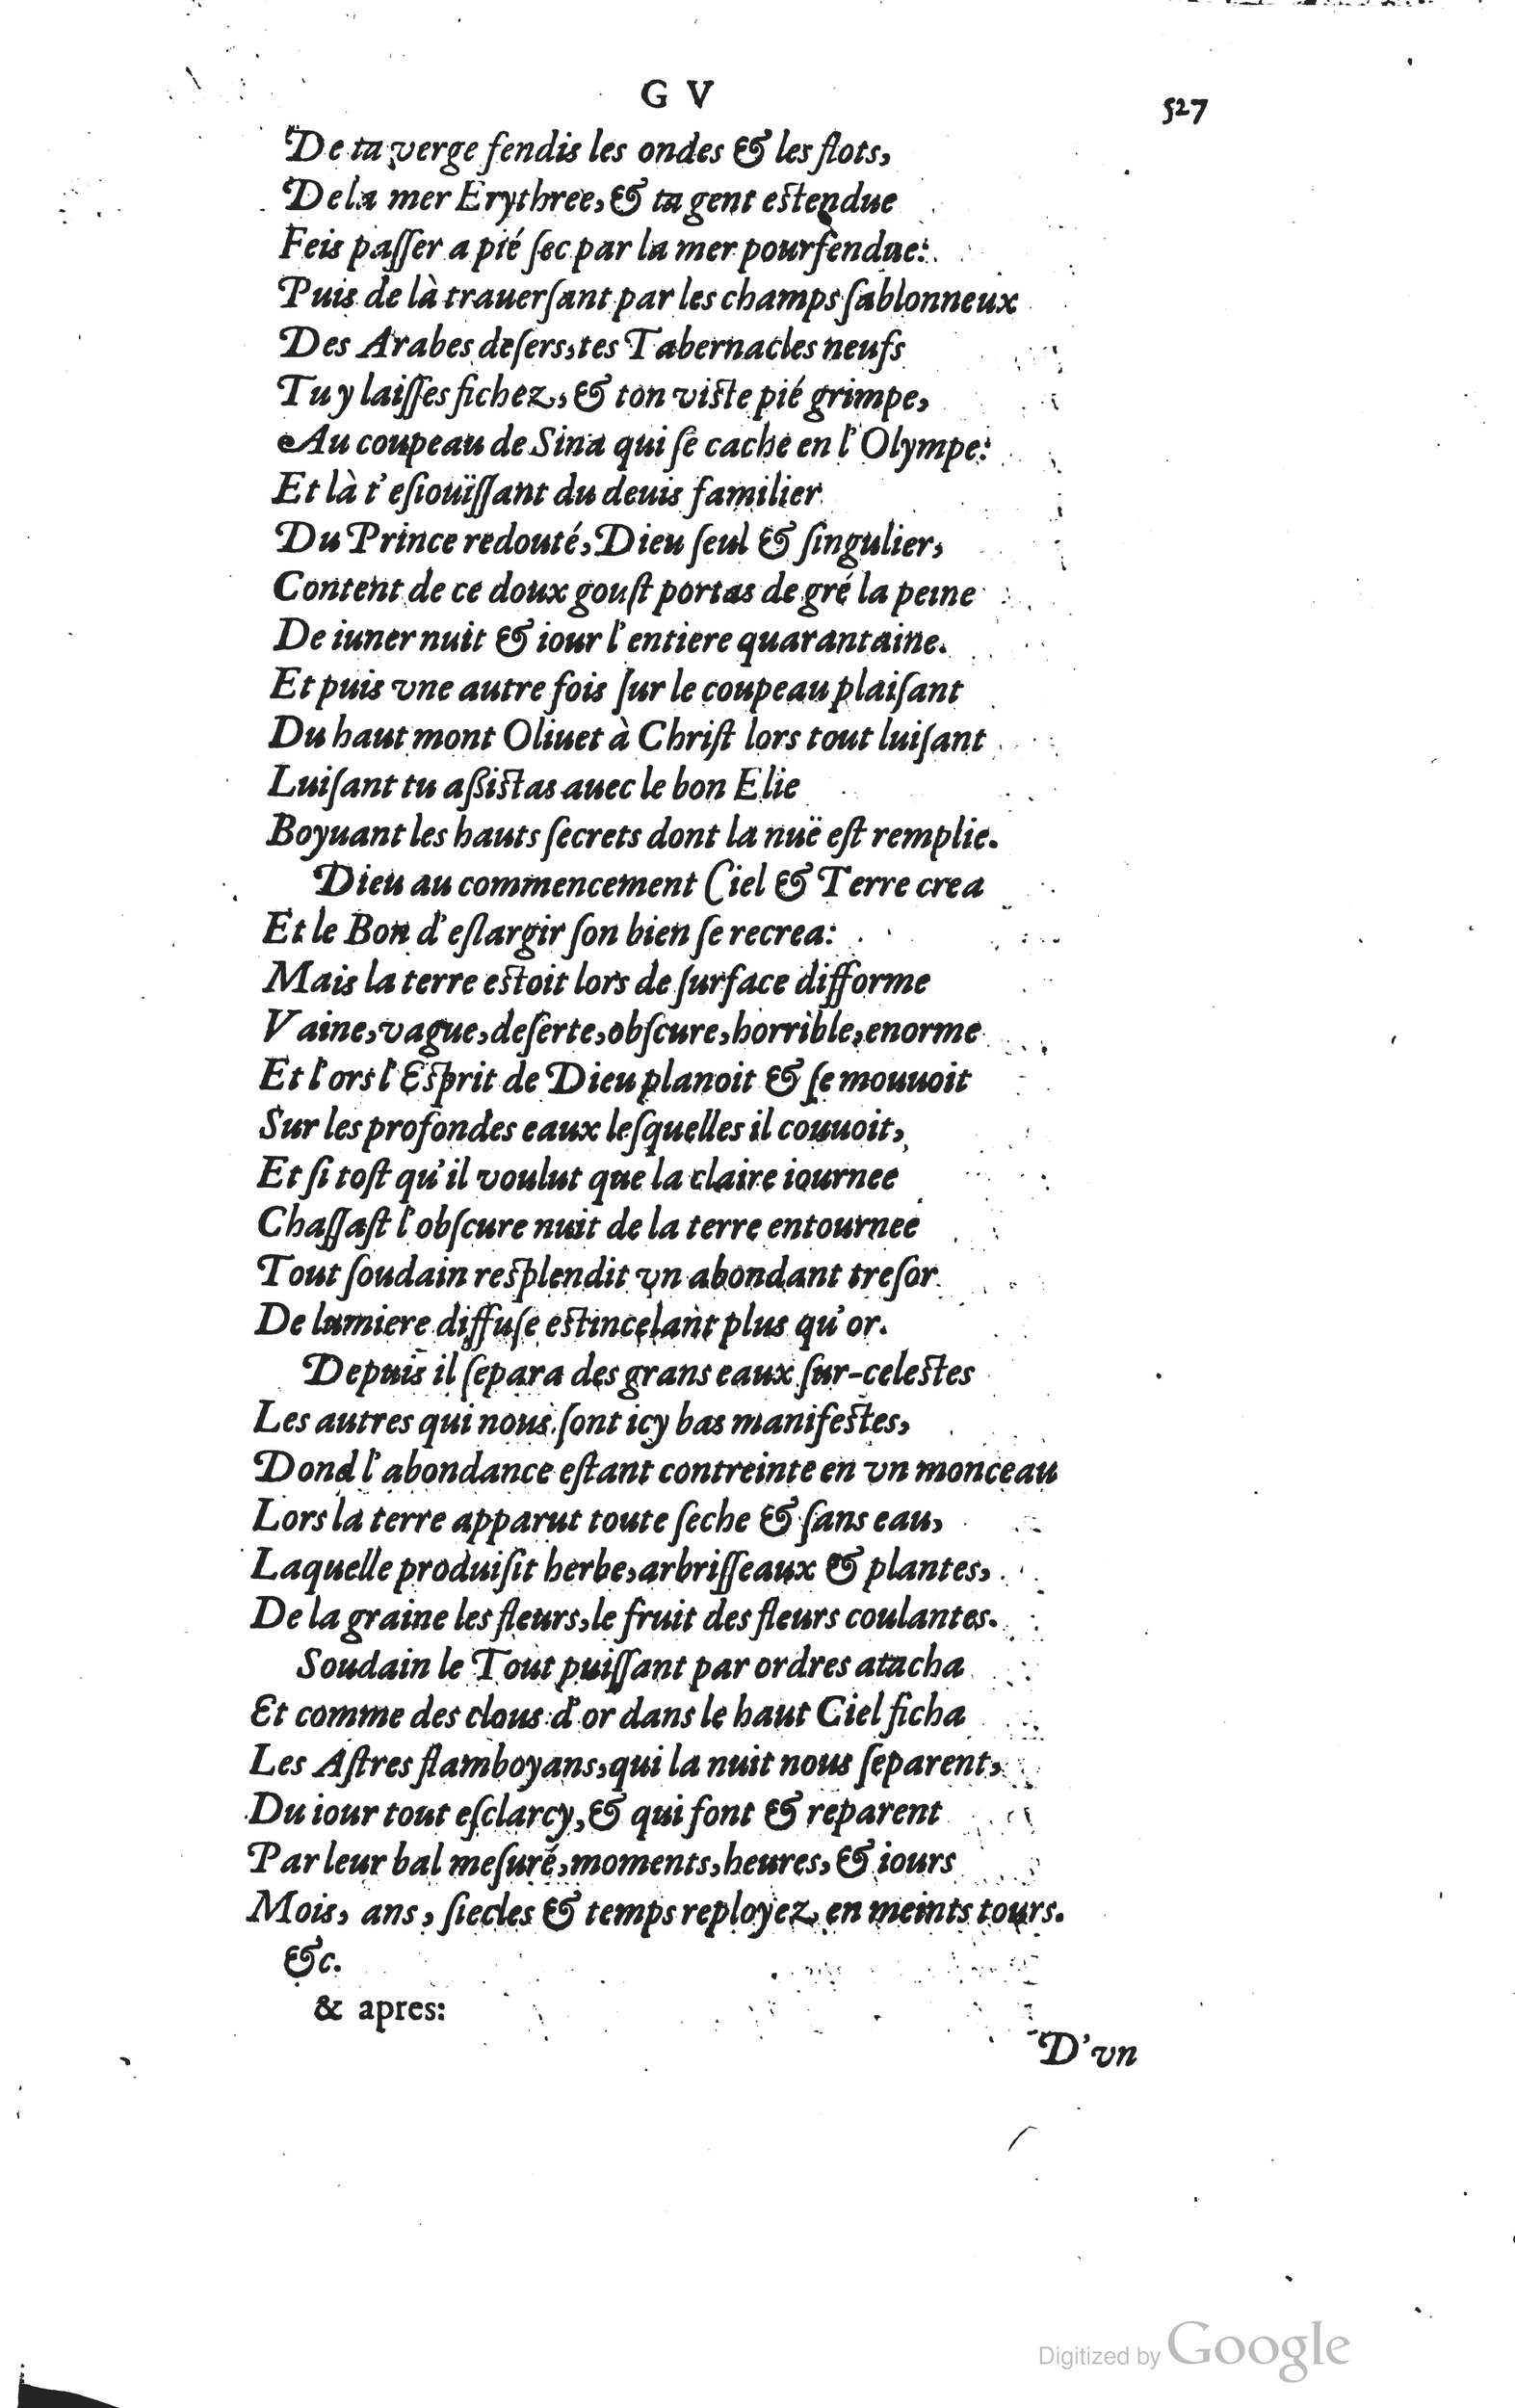 G V
527
De ta verge fendis les ondes & les flots,
De la mer Erythree, & ta gent estendue
Feis paſſer a pié ſec par la mer pourfendue:
Puis de là trauerſant par les champs ſablonneux
Des Arabes deſers, tes Tabernacles neufs
Tu y laiſſes fichez, & ton viste pié grimpe,
Au coupeau de Sina qui ſe cache en l'Olympe:
Et là t'eſiouïſſant du deuis familier
Du Prince redouté, Dieu ſeul & ſingulier,
Content de ce doux gouſt portas de gré la peine
De iuner nuit & iour l'entiere quarantaine.
Et puis vne autre fois ſur le coupeau plaiſant
Du haut mont Oliuet à Chriſt lors tout luiſant
Luiſant tu aßistas auec le bon Elie
Boyuant les hauts ſecrets dont la nuë eſt remplie.
Dieu au commencement Ciel & Terre crea
Et le Bon d'eſlargir ſon bien ſe recrea:
Mais la terre estoit lors de ſurface difforme
Vaine, vague, deſerte, obſcure, horrible, enorme
Et l'ors l'Esprit de Dieu planoit & ſe mouuoit
Sur les profondes eaux leſquelles il couuoit,
Et ſi toſt qu'il voulut que la claire iournee
Chaſſaſt l'obſcure nuit de la terre entournee
Tout ſoudain resplendit vn abondant treſor
De lumiere diffuſe estincelant plus qu'or.
Depuis il ſepara des grans eaux ſur-celestes
Les autres qui nous ſont icy bas manifestes,
Dond l'abondance eſtant contreinte en vn monceau
Lors la terre apparut toute ſeche & ſans eau,
Laquelle produiſit herbe, arbriſſeaux & plantes,
De la graine les fleurs, le fruit des fleurs coulantes.
Soudain le Tout puiſſant par ordres atacha
Et comme des clous d'or dans le haut Ciel ficha
Les Aſtres flamboyans, qui la nuit nous ſeparent,
Du iour tout eſclarcy, & qui font & reparent
Par leur bal meſuré, moments, heures, & iours
Mois, ans, ſiecles & temps reployez en meints tours.
&c.
& apres:
D'vn
Digitized by Google